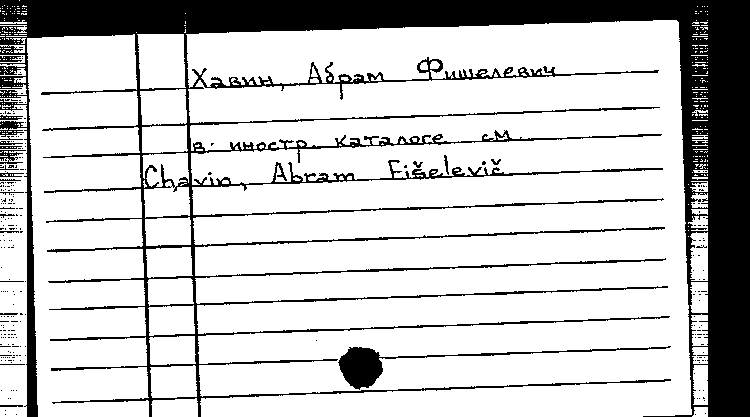 Хавин, Абрам Фишелевич
в иностр. каталоге см.
Chavin, Abram Fišelevič